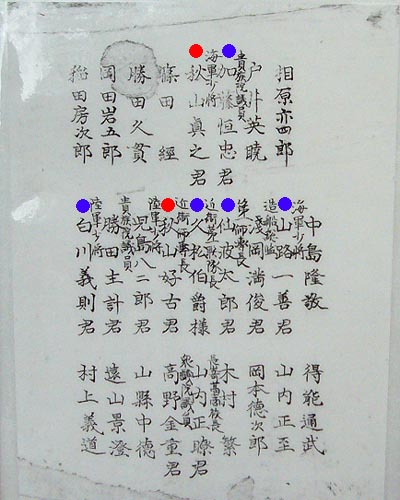 相原亦四郎
戸井英暁
貴族院議員
加藤恒忠君
海軍少将
秋山真之君
藤田經
勝田久貫
岡田岩五郎
稲田房次郎
中島隆敬
海軍少将
山路一善君
造船総監
浅岡満俊君
第一師団長
仙波太郎君
近衛第一聯隊長
久松伯爵様
近衛師団長
秋山好古君
陸軍少将
児島八二郎君
貴族院議員
勝田主計君
陸軍少将
白川義則君
得能通武
山内正至
岡本德次郎
木村繁
山内正瞭君
衆議院議員
高野金重君
山縣中德
遠山景澄
村上義道